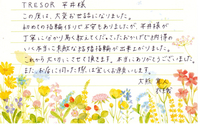 TRESOR 平井様
この度は、大変お世話になりました。
初めての指輪作りで不安もありましたが、平井様が
丁寧に分かり易く教えてくださったおかげで納得の
いく本当に素敵な結婚指輪が出来上がりました。
これから大切にさせて頂きます。本当にありがとうございました。
また、お店に伺った際は宜しくお願いします。